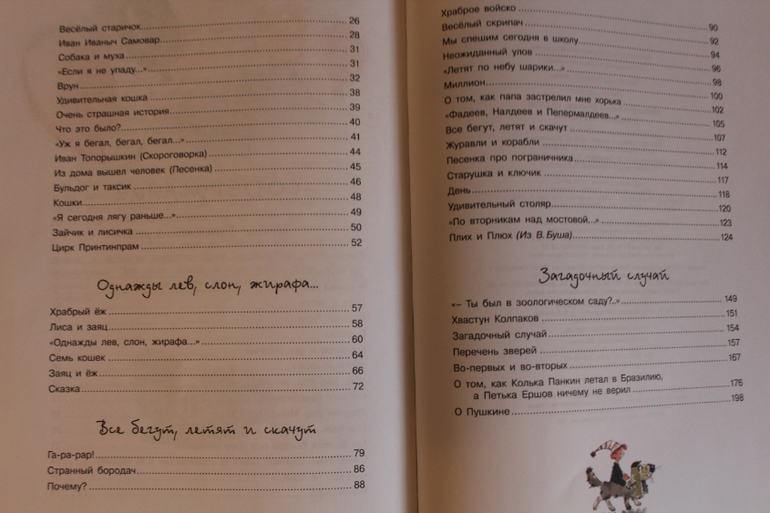 Весёлый старичок 26
Иван Иваныч Самовар 28
Собака и муха 31
«Если я не упаду...» 31
Врун 32
Удивительная кошка 38
Очень страшная история 39
Что это было? 40
«Уж я бегал, бегал, бегал...» 41
Иван Топорышкин (Скороговорка) 44
Из дома вышел человек (Песенка) 45
Бульдог и таксик 46
Кошки 48
«Я сегодня лягу раньше...» 49
Зайчик и лисичка 50
Цирк Принтинпрам 52
Однажды лев, слон, жирафа...
Храбрый ёж 57
Лиса и заяц 58
«Однажды лев, слон, жирафа...» 60
Семь кошек 64
Заяц и ёж 66
Сказка 72
Все бегут, летят и скачут
Га-ра-рар! 79
Странный бородач 86
Почему? 88
Храброе войско 90
Весёлый скрипач 92
Мы спешим сегодня в школу 94
Неожиданный улов 96
«Летят по небу шарики...» 98
Миллион 100
О том, как папа застрелил мне хорька 102
«Фадеев, Налдеев и Пепермалдеев...» 105
Все бегут, летят и скачут 107
Журавли и корабли 112
Песенка про пограничника 114
Старушка и ключик 117
День 118
Удивительный столяр 120
«По вторникам над мостовой...» 123
Плих и Плюх (Из В. Буша) 124
Загадочный случай
«– Ты был в зоологическом саду?..» 149
Хвастун Колпаков 151
Загадочный случай 154
Перечень зверей 157
Во-первых и во-вторых 167
О том, как Колька Панкин летал в Бразилию,
а Петька Ершов ничему не верил 176
О Пушкине 198